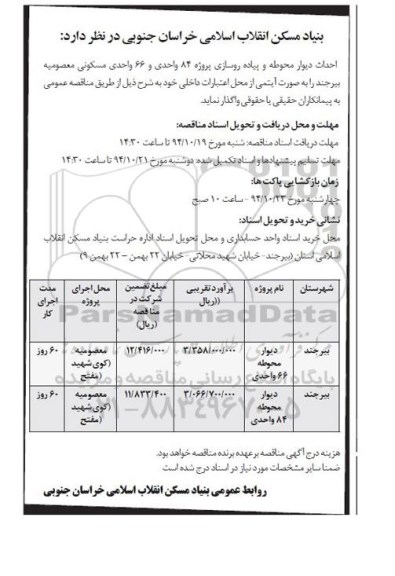 بنیاد مسکن انقلاب اسلامی خراسان جنوبی در نظر دارد:
احداث دیوار محوطه و پیاده روسازی پروژه ۸۴ واحدی و ۶۶ واحدی مسکونی معصومیه
بیرجند را به صورت آیتمی از محل اعتبارات داخلی خود به شرح ذیل از طریق مناقصه عمومی
به پیمانکاران حقیقی یا حقوقی واگذار نماید.
مهلت و محل دریافت و تحویل اسناد مناقصه:
مهلت دریافت اسناد مناقصه: شنبه مورخ ۹۴/۱۰/۱۹ تا ساعت ۱۴:۳۰
مهلت تسلیم پیشنهادها و اسناد تکمیل شده: دوشنبه مورخ ۹۴/۱۰/۲۱ تا ساعت ۱۴:۳۰
زمان بازگشایی پاکت ها:
چهارشنبه مورخ ۹۴/۱۰/۲۳ - ساعت ۱۰ صبح
نشانی خرید و تحویل اسناد:
محل خرید اسناد واحد حسابداری و محل تحویل اسناد اداره حراست بنیاد مسکن انقلاب
اسلامی استان (بیرجند - خیابان شهید محلاتی - خیابان ۲۲ بهمن – ۲۲ بهمن ۹)
شهرستان نام پروژه برآورد تقریبی (ریال) مبلغ تضمین شرکت در مناقصه (ریال) محل اجرای پروژه مدت اجرای کار
بیرجند دیوار محوطه ۶۶ واحدی ۳/۳۵۸/۰۰۰/۰۰۰ ۱۲/۴۱۶/۰۰۰ معصومیه (کوی شهید مفتح) ۶۰ روز
بیرجند دیوار محوطه ۸۴ واحدی ۳/۰۶۶/۷۰۰/۰۰۰ ۱۱/۸۳۳/۴۰۰ معصومیه (کوی شهید مفتح) ۶۰ روز
ParsNamadData
پایگاه اطلاع رسانی مناقصه و مزایده
۰۲۱-۸۸۳۴۹۶۷۰-۵
هزینه درج آگهی مناقصه بر عهده برنده مناقصه خواهد بود.
ضمنا سایر مشخصات مورد نیاز در اسناد درج شده است
روابط عمومی بنیاد مسکن انقلاب اسلامی خراسان جنوبی